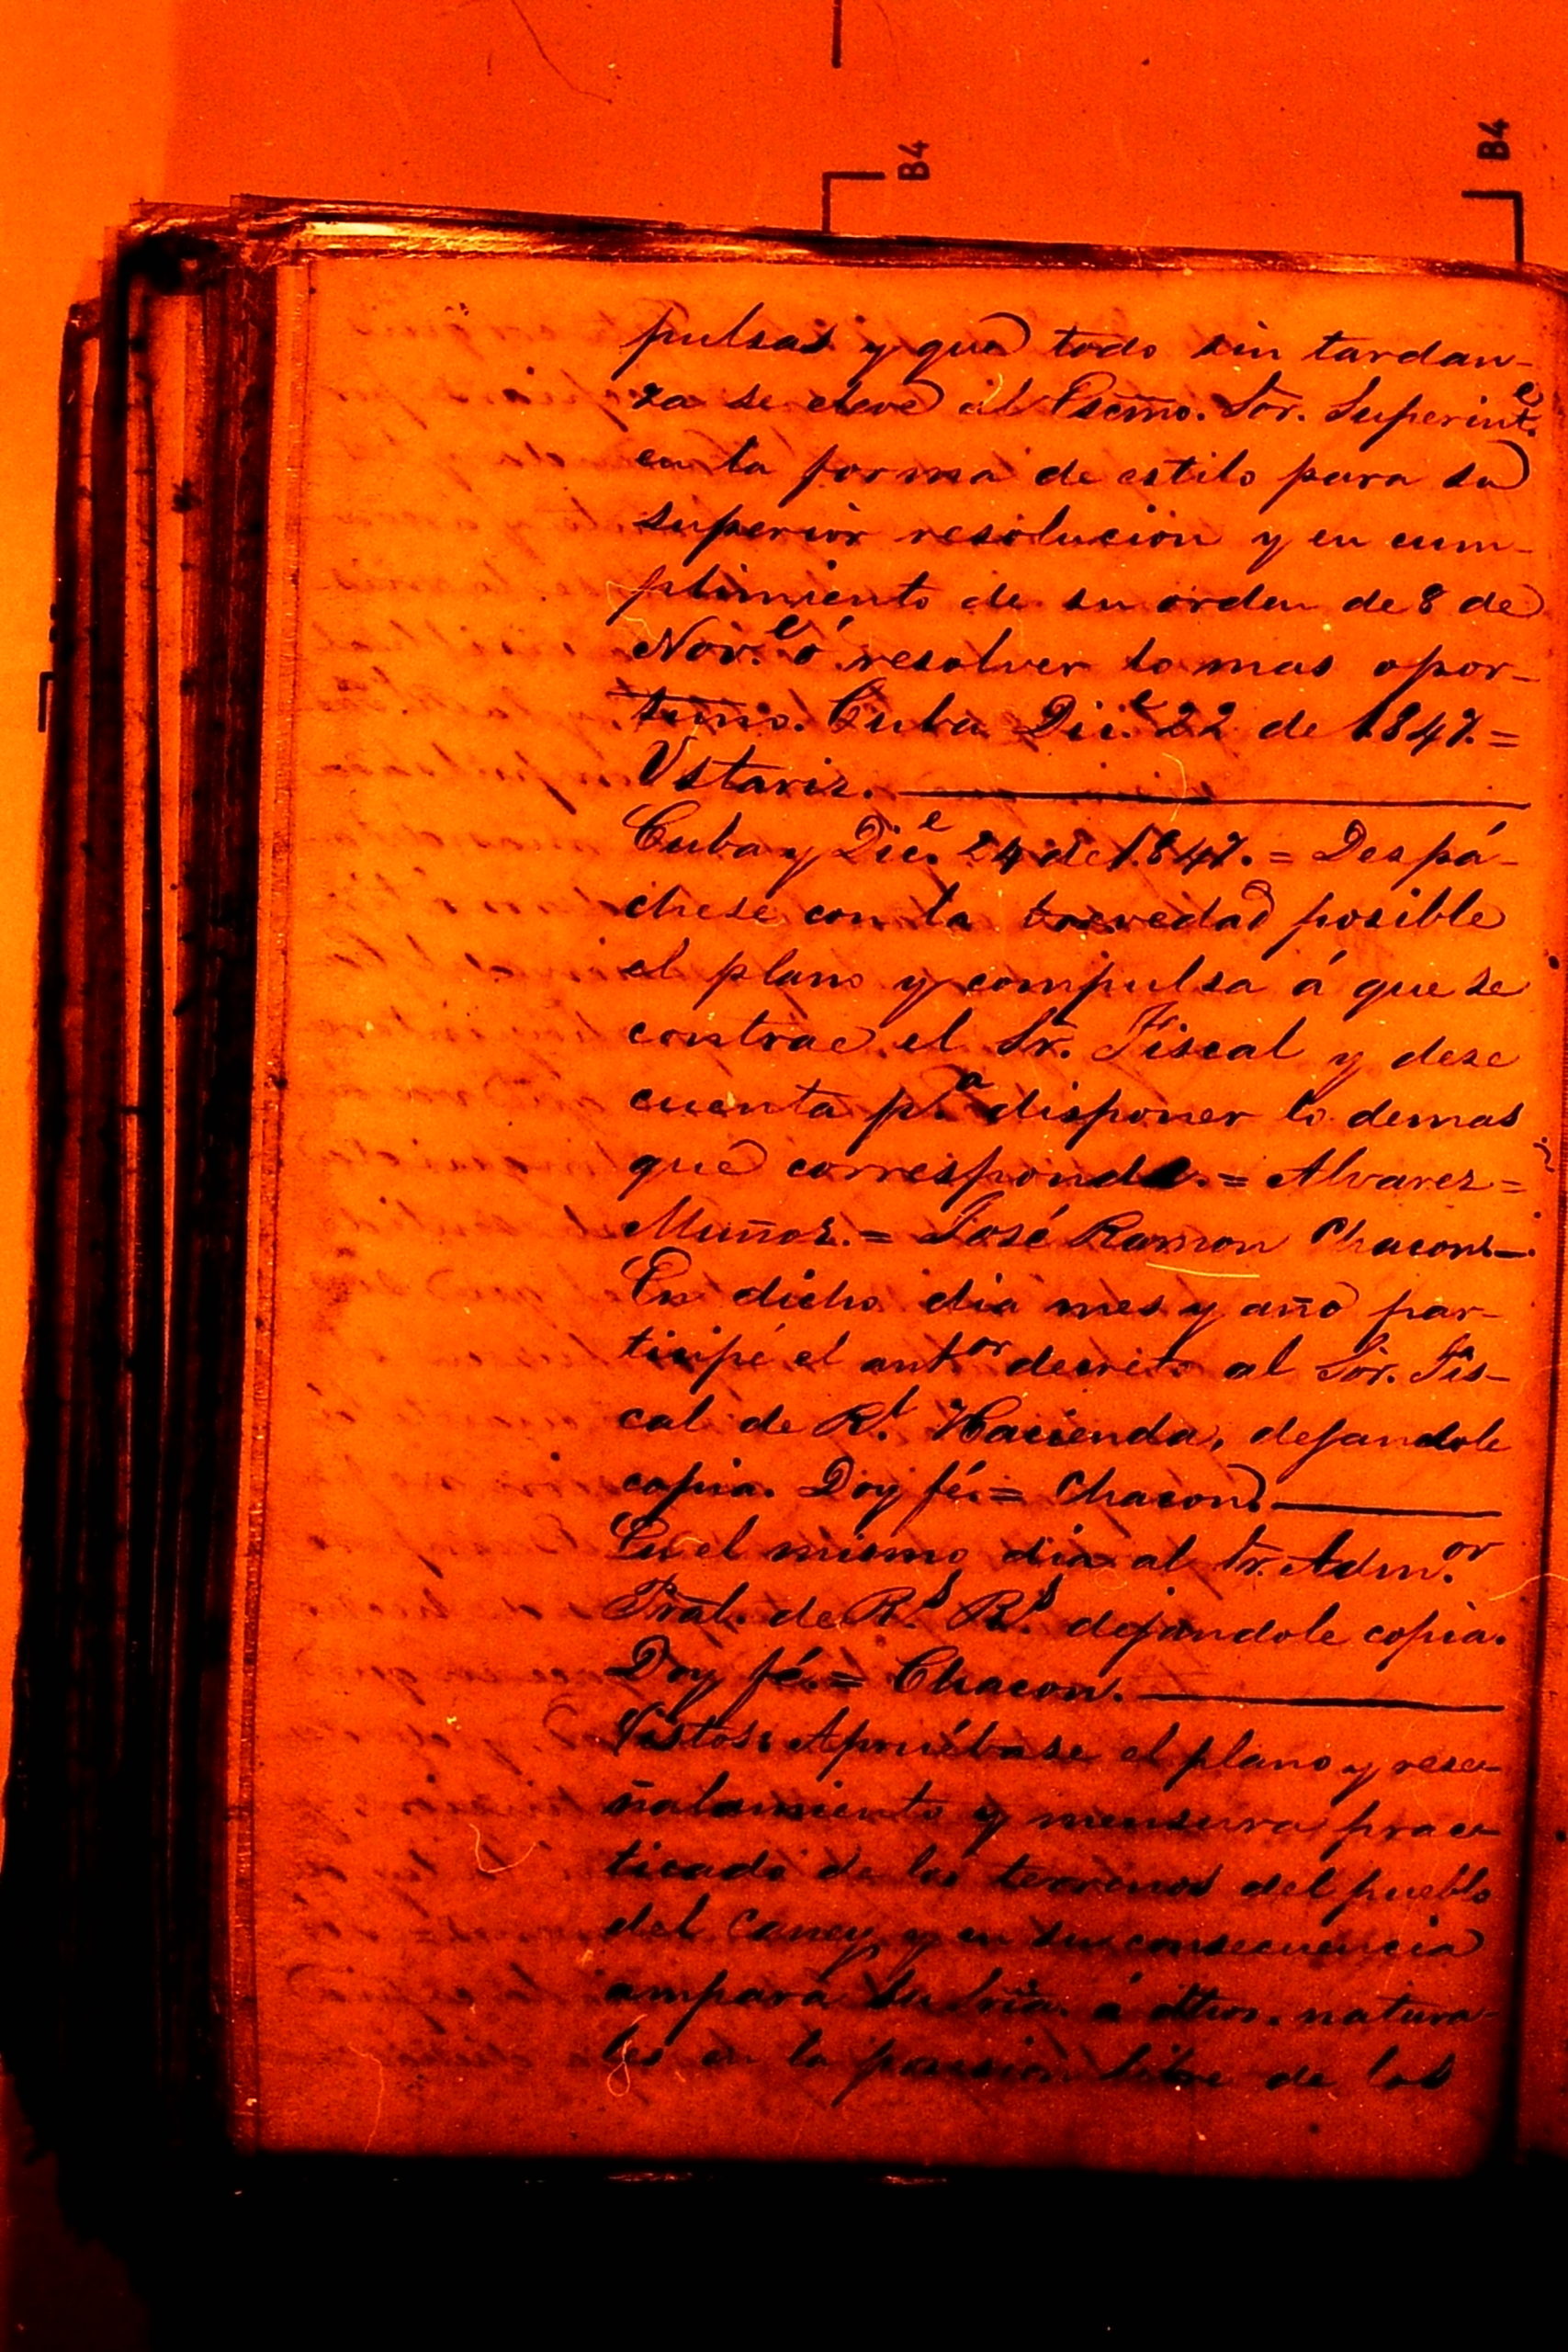 B4
B4
pulsas y que todo sin tardan-
za se eleve al Escmo. Sor. Superint.e
en la forma de estilo para su
superior resolucion y en cum-
plimiento de su orden de 8 de
Nov.e ó resolver lo mas opor-
tuno. Cuba Dic.e 22 de 1847. =
Ustariz.
Cuba y Dic.e 24 de 1847. = Despá-
chese con la brevedad posible
el plano y compulsa á que se
contrae el Sr. Fiscal y dese
cuenta p.a disponer lo demas
que corresponda. = Alvarez =
Muñoz. = José Ramon Chacon.
En dicho dia mes y año par-
ticipé el ant.or decreto al Sor. Fis-
cal de R.l Hacienda, dejandole
copia. Doy fé. = Chacon.
En el mismo dia al Sr. Adm.or
Pral. de R.s R.s dejandole copia.
Doy fé. = Chacon.
Vistos: Apruébase el plano y rese-
ñalamiento y mensura prac-
ticado de los terrenos del pueblo
del Caney, y en su consecuencia
ampara Su Sria. á dhos. natura-
les en la posesion libre de los